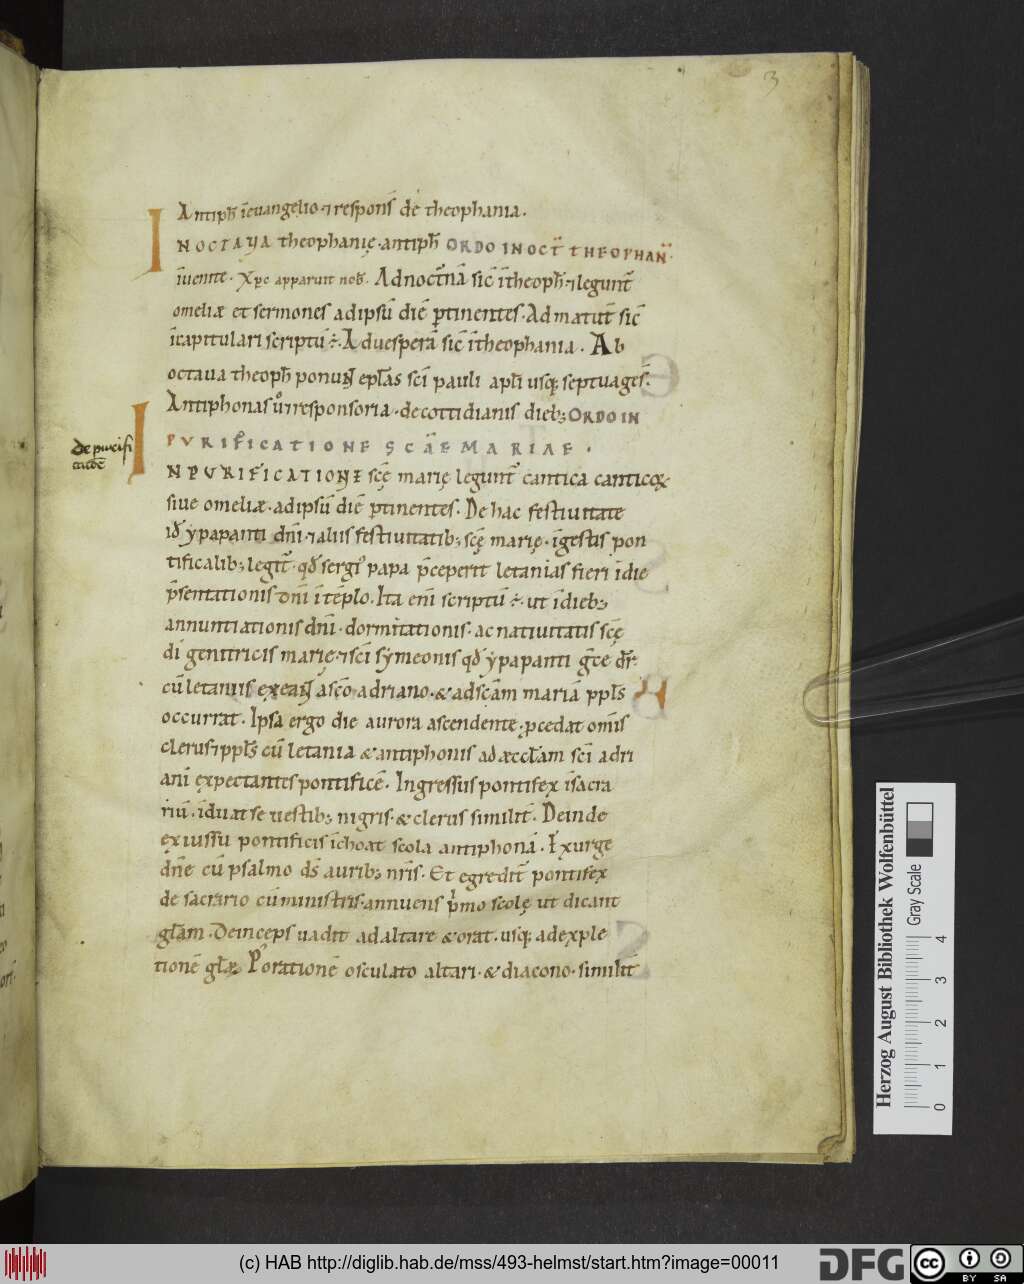 3
Antiph̄ īeuangelio ⁊ respons̄ de theophania.
INOCTAVA theophanię antiph̄ ORDO IN OCT̄ THEOPHAN̄.
īuenite. Xp̄c apparuit nob̄. Ad noct̄nā sic̄ ītheoph̄ ⁊ legunt̄
omeliæ et sermones adipsū diē ꝑtinentes. Ad matut̄ sic̄
īcapitulari scriptū ÷. Aduesperā sic̄ ītheophania. Ab
octaua theoph̄ ponunt̄ epl̄as sc̄i pauli apl̄i usq; septuages̄.
Antiphonas ū ⁊ responsoria de cottidianis dieb; ORDO IN
PVRIFICATIONE SC̄AE MARIAE.
De purifi
catiōe
INPVRIFICATIONE sc̄ę marię legunt̄ cantica canticoꝝ
siue omeliæ adipsū diē ꝑtinentes. De hac festiuitate
id̄ ypapanti dn̄i ⁊ aliis festiuitatib; sc̄ę marię īgestis pon
tificalib; legit̄ qd̄ sergi' papa p̄ceperit letanias fieri īdie
p̄sentationis dn̄i ītēplo. Ita eni̅ scriptū ÷. ut īdieb;
annuntiationis dn̄i dormitationis ac natiuitatis sc̄ę
di̅ genitricis marię ⁊ sc̄i symeonis qd̄ ypapanti gr̄ce dr̄
cū letaniis exeant̄ a sc̄o adriano & ad sc̄am mariā ppl̄s
occurrat. Ipsa ergo die aurora ascendente ꝓcedat omi̅s
clerus ⁊ ppl̄s cū letania & antiphonis ad æccl̄am sc̄i adri
ani̅ expectantes pontificē. Ingressus pontifex īsacra
riū īduat se uestib; nigris & clerus similit̄. Deinde
ex iussu pontificis īchoat scola antiphonā. Exurge
dn̄e cū psalmo ds̄ aurib; nr̄is. Et egredit̄ pontifex
de sacrario cū ministris annuens p̄mo scolę ut dicant
gl̄am. Deinceps uadit ad altare & orat usq; ad exple
tionē gl̄æ. P' orationē osculato altari & diacono similit̄
Herzog August Bibliothek Wolfenbüttel
Gray Scale
0 1 2 3 4
(c) HAB http://diglib.hab.de/mss/493-helmst/start.htm?image=00011
DFG
cc BY SA